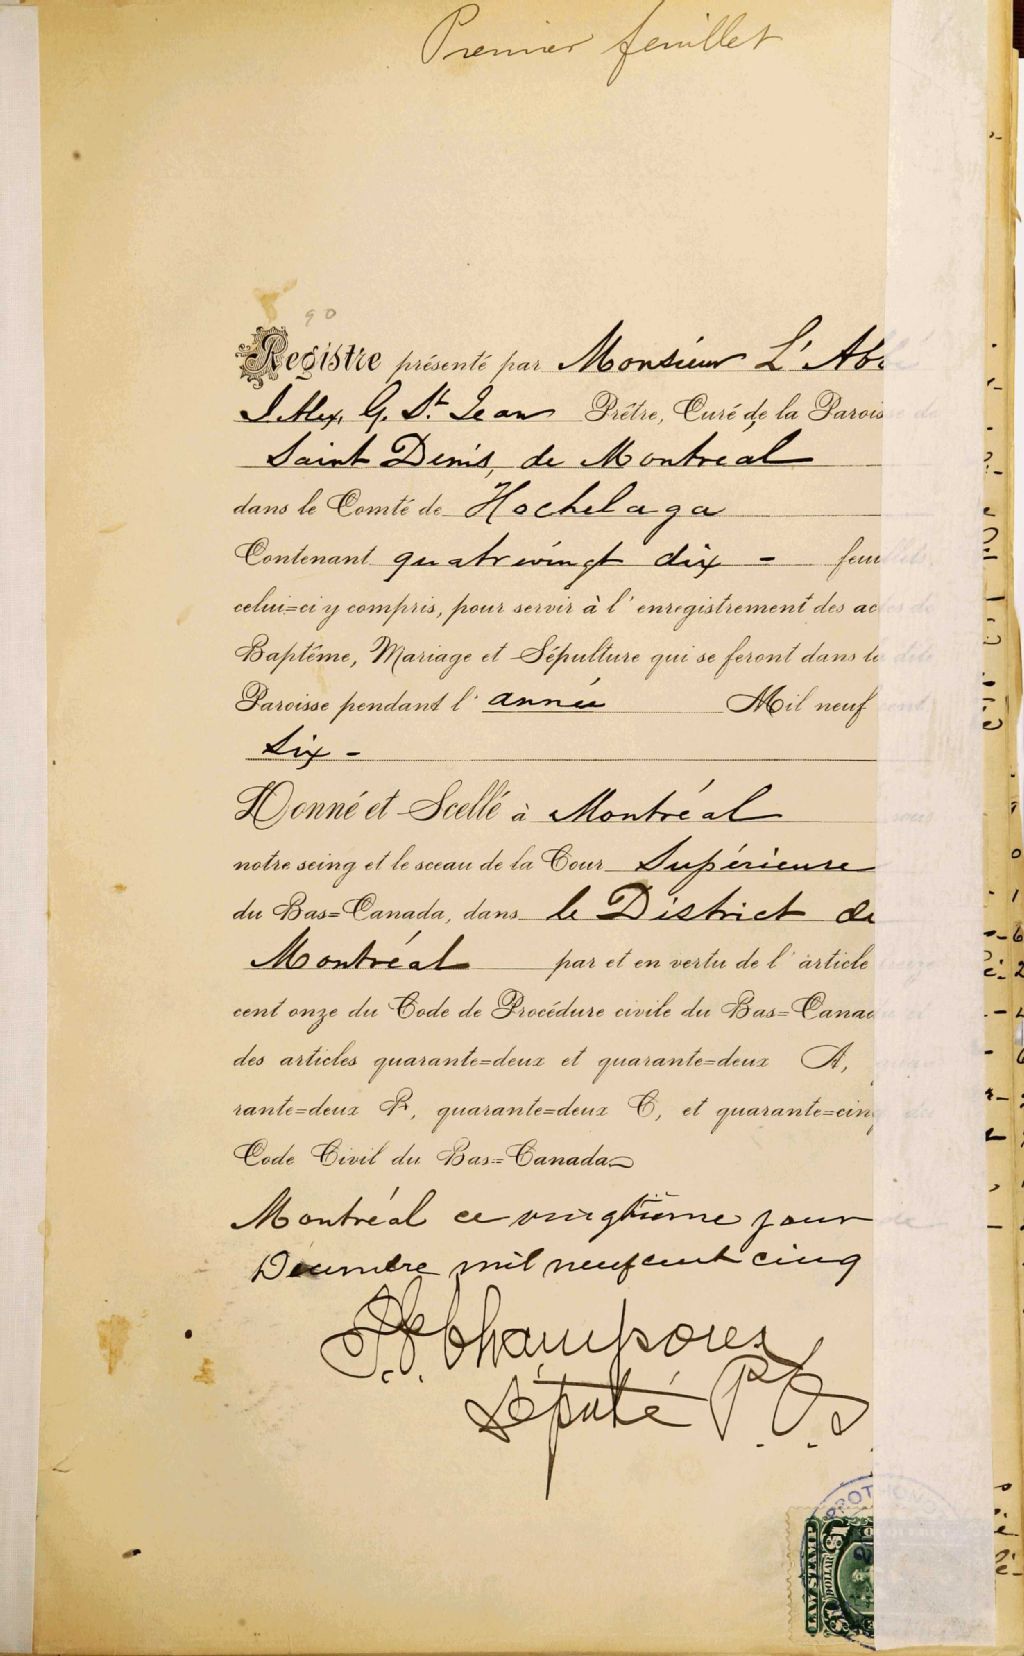 Premier feuillet
90
Registre présenté par Monsieur L'Abbé
J. Alex, G. St Jean Prêtre, Curé de la Paroisse de
Saint Denis, de Montréal
dans le Comté de Hochelaga
Contenant quatrevingt dix - feuillets,
celui=ci y compris, pour servir à l'enregistrement des actes de
Baptême, Mariage et Sépulture qui se feront dans la dite
Paroisse pendant l'année Mil neuf cent
six -
Donné et Scellé à Montréal sous
notre seing et le sceau de la Cour Supérieure
du Bas=Canada, dans le District de
Montréal par et en vertu de l'article
cent onze du Code de Procédure civile du Bas=Canada et
des articles quarante=deux et quarante=deux A,
rante=deux B, quarante=deux C, et quarante=cinq du
Code Civil du Bas=Canada
Montréal ce vingtième jour de
Décembre mil neuf cent cinq
Député P. C. S.
PROTHONO
LAW STAMP
$1 DOLLAR $1